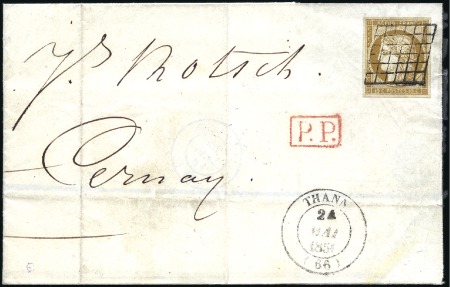 Js Kotsch.
Cernay.
P.P.
THANN
24
MAI
185
(66)